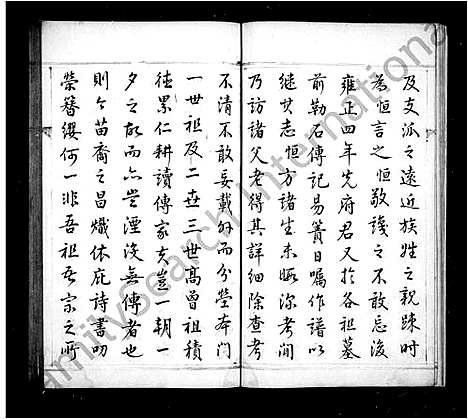 及支派之遠近族姓之親疎時
為恒言之恒敬識之不敢忘後
雍正四年先府君又於各祖墓
前勒石傳記易簀日囑作譜以
継其志恒方諸生未暇深考閒
乃訪諸父老得其詳細除查考
不清不敢妄載外而分塋本門
一世祖及二世三世高曾祖積
徳累仁耕讀傳家亥豈一朝一
夕之故而亦豈湮沒無傳者也
則今苗裔之昌熾休庇詩書叨
榮簪纓何一非吾祖吾宗之所
FamilySearch International